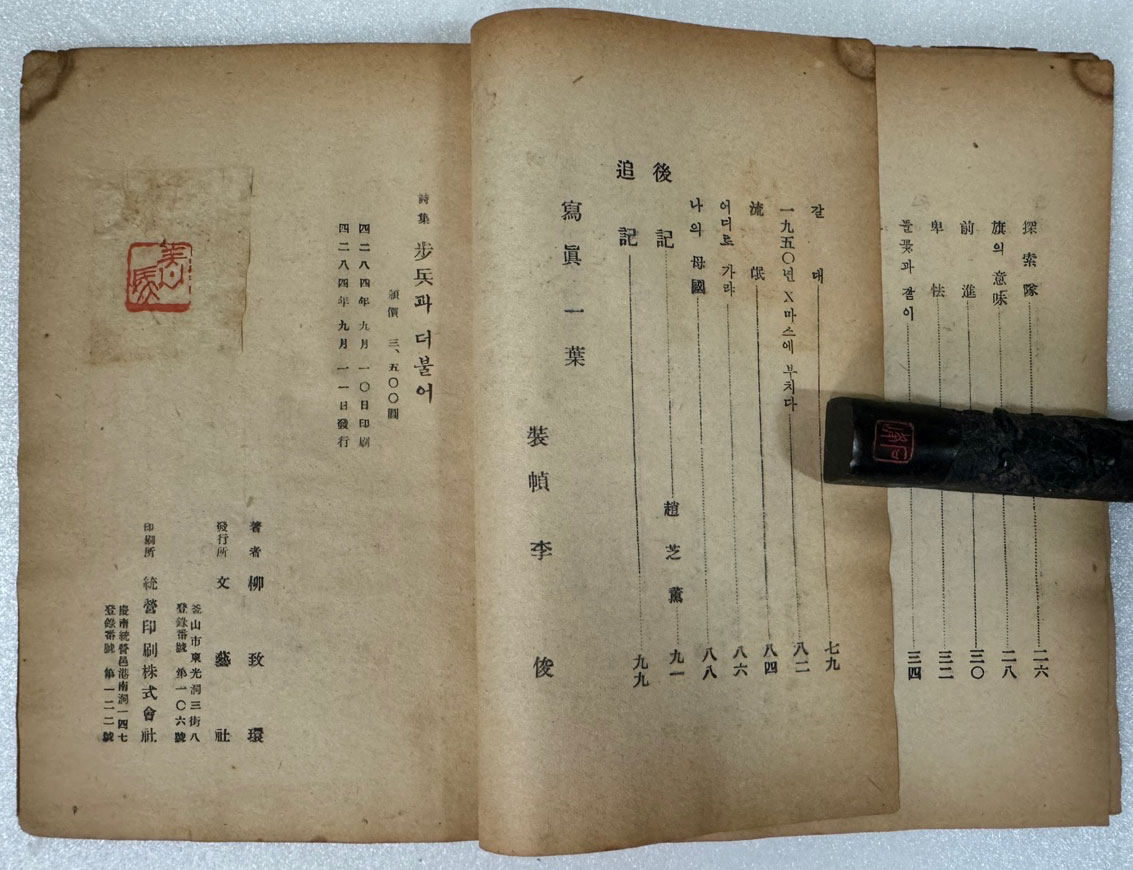 探索隊 二六
旗의 意味 二八
前進 三〇
卑怯 三二
불꽃과 잠이 三四
갈대 七九
一九五〇년 X마스에 부치다 八二
流氓 八四
어디로 가라 八六
나의 母國 八八
後記 趙芝薰 九一
追記 九九
寫眞一葉
裝幀 李俊
詩集 步兵과 더불어
頒價 三、五〇〇圓
四二八四年 九月 一〇日印刷
四二八四年 九月 一一日發行
著者 柳致環
發行所 文藝社
釜山市東光洞三街八
登錄番號 第一〇六號
印刷所 統營印刷株式會社
慶南統營邑港南洞一四七
登錄番號 第一二二號